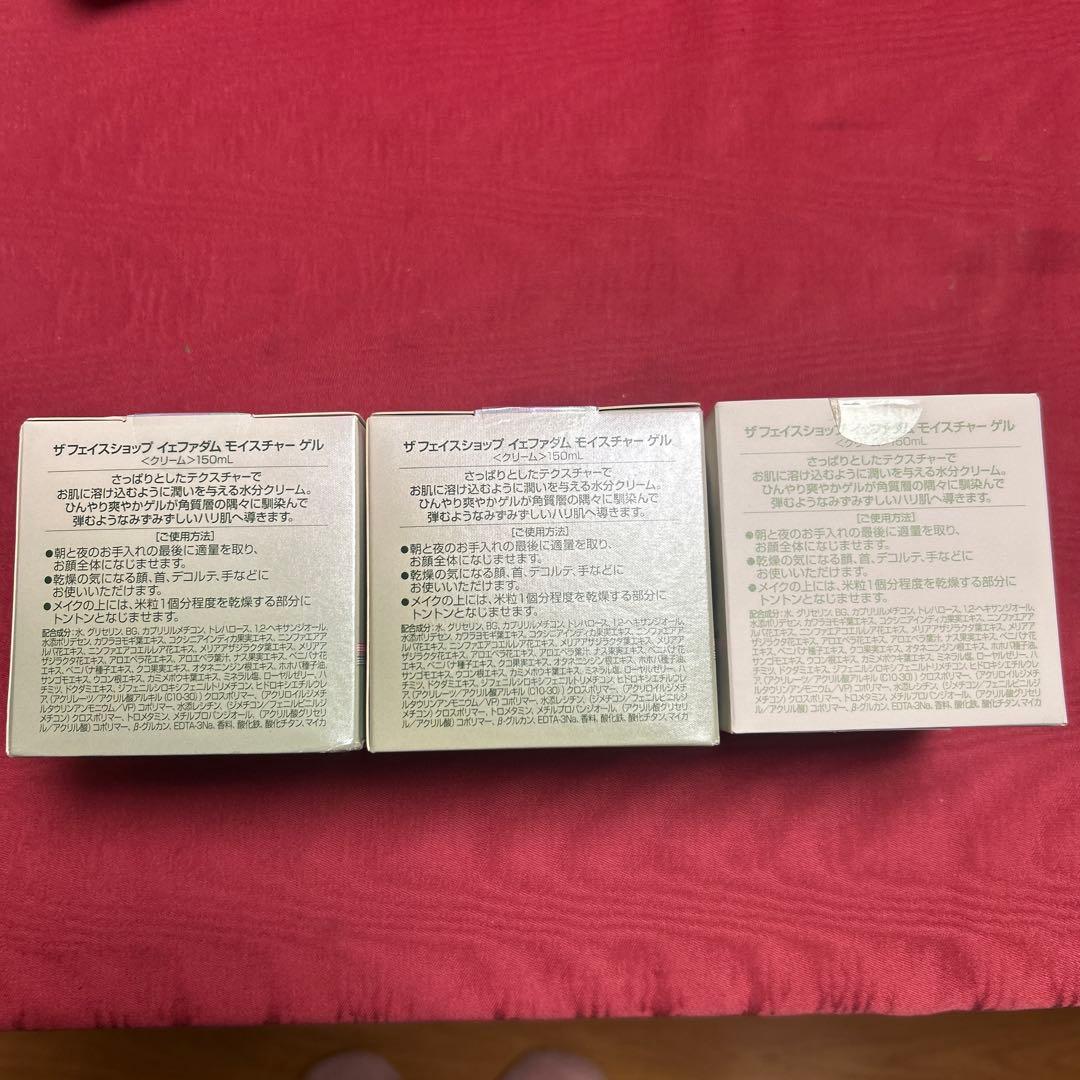 ザ フェイスショップ イェファダム モイスチャー ゲル
＜クリーム＞150mL
さっぱりとしたテクスチャーで
お肌に溶け込むように潤いを与える水分クリーム。
ひんやり爽やかゲルが角質層の隅々に馴染んで
弾むようなみずみずしいハリ肌へ導きます。
[ご使用方法]
●朝と夜のお手入れの最後に適量を取り、
お顔全体になじませます。
●乾燥の気になる顔、首、デコルテ、手などに
お使いいただけます。
●メイクの上には、米粒1個分程度を乾燥する部分に
トントンとなじませます。
配合成分：水、グリセリン、BG、カプリリルメチコン、トレハロース、1,2-ヘキサンジオール、
水添ポリデセン、カワラヨモギ葉エキス、コクシニアインディカ果実エキス、ニンファエアア
ルバ花エキス、ニンファエアコエルレア花エキス、メリアアザジラクタ葉エキス、メリアア
ザジラクタ花エキス、アロエベラ花エキス、アロエベラ葉汁、ナス果実エキス、ベニバナ花
エキス、ベニバナ種子エキス、クコ果実エキス、オタネニンジン根エキス、ホホバ種子油、
サンゴモエキス、ウコン根エキス、カミメボウキ葉エキス、ミネラル塩、ローヤルゼリー、ハ
チミツ、ドクダミエキス、ジフェニルシロキシフェニルトリメチコン、ヒドロキシエチルウレ
ア、(アクリレーツ/アクリル酸アルキル(C10-30))クロスポリマー、(アクリロイルジメチ
ルタウリンアンモニウム/VP)コポリマー、水添レシチン、(ジメチコン/フェニルビニルジ
メチコン)クロスポリマー、トロメタミン、メチルプロパンジオール、(アクリル酸グリセリ
ル/アクリル酸)コポリマー、β-グルカン、EDTA-3Na、香料、酸化鉄、酸化チタン、マイカ
ザ フェイスショップ イェファダム モイスチャー ゲル
＜クリーム＞150mL
さっぱりとしたテクスチャーで
お肌に溶け込むように潤いを与える水分クリーム。
ひんやり爽やかゲルが角質層の隅々に馴染んで
弾むようなみずみずしいハリ肌へ導きます。
[ご使用方法]
●朝と夜のお手入れの最後に適量を取り、
お顔全体になじませます。
●乾燥の気になる顔、首、デコルテ、手などに
お使いいただけます。
●メイクの上には、米粒1個分程度を乾燥する部分に
トントンとなじませます。
配合成分：水、グリセリン、BG、カプリリルメチコン、トレハロース、1,2-ヘキサンジオール、
水添ポリデセン、カワラヨモギ葉エキス、コクシニアインディカ果実エキス、ニンファエアア
ルバ花エキス、ニンファエアコエルレア花エキス、メリアアザジラクタ葉エキス、メリアア
ザジラクタ花エキス、アロエベラ花エキス、アロエベラ葉汁、ナス果実エキス、ベニバナ花
エキス、ベニバナ種子エキス、クコ果実エキス、オタネニンジン根エキス、ホホバ種子油、
サンゴモエキス、ウコン根エキス、カミメボウキ葉エキス、ミネラル塩、ローヤルゼリー、ハ
チミツ、ドクダミエキス、ジフェニルシロキシフェニルトリメチコン、ヒドロキシエチルウレ
ア、(アクリレーツ/アクリル酸アルキル(C10-30))クロスポリマー、(アクリロイルジメチ
ルタウリンアンモニウム/VP)コポリマー、水添レシチン、(ジメチコン/フェニルビニルジ
メチコン)クロスポリマー、トロメタミン、メチルプロパンジオール、(アクリル酸グリセリ
ル/アクリル酸)コポリマー、β-グルカン、EDTA-3Na、香料、酸化鉄、酸化チタン、マイカ
ザ フェイスショップ イェファダム モイスチャー ゲル
＜クリーム＞150mL
さっぱりとしたテクスチャーで
お肌に溶け込むように潤いを与える水分クリーム。
ひんやり爽やかゲルが角質層の隅々に馴染んで
弾むようなみずみずしいハリ肌へ導きます。
[ご使用方法]
●朝と夜のお手入れの最後に適量を取り、
お顔全体になじませます。
●乾燥の気になる顔、首、デコルテ、手などに
お使いいただけます。
●メイクの上には、米粒1個分程度を乾燥する部分に
トントンとなじませます。
配合成分：水、グリセリン、BG、カプリリルメチコン、トレハロース、1,2-ヘキサンジオール、
水添ポリデセン、カワラヨモギ葉エキス、コクシニアインディカ果実エキス、ニンファエアア
ルバ花エキス、ニンファエアコエルレア花エキス、メリアアザジラクタ葉エキス、メリアア
ザジラクタ花エキス、アロエベラ花エキス、アロエベラ葉汁、ナス果実エキス、ベニバナ花
エキス、ベニバナ種子エキス、クコ果実エキス、オタネニンジン根エキス、ホホバ種子油、
サンゴモエキス、ウコン根エキス、カミメボウキ葉エキス、ミネラル塩、ローヤルゼリー、ハ
チミツ、ドクダミエキス、ジフェニルシロキシフェニルトリメチコン、ヒドロキシエチルウレ
ア、(アクリレーツ/アクリル酸アルキル(C10-30))クロスポリマー、(アクリロイルジメチ
ルタウリンアンモニウム/VP)コポリマー、水添レシチン、(ジメチコン/フェニルビニルジ
メチコン)クロスポリマー、トロメタミン、メチルプロパンジオール、(アクリル酸グリセリ
ル/アクリル酸)コポリマー、β-グルカン、EDTA-3Na、香料、酸化鉄、酸化チタン、マイカ